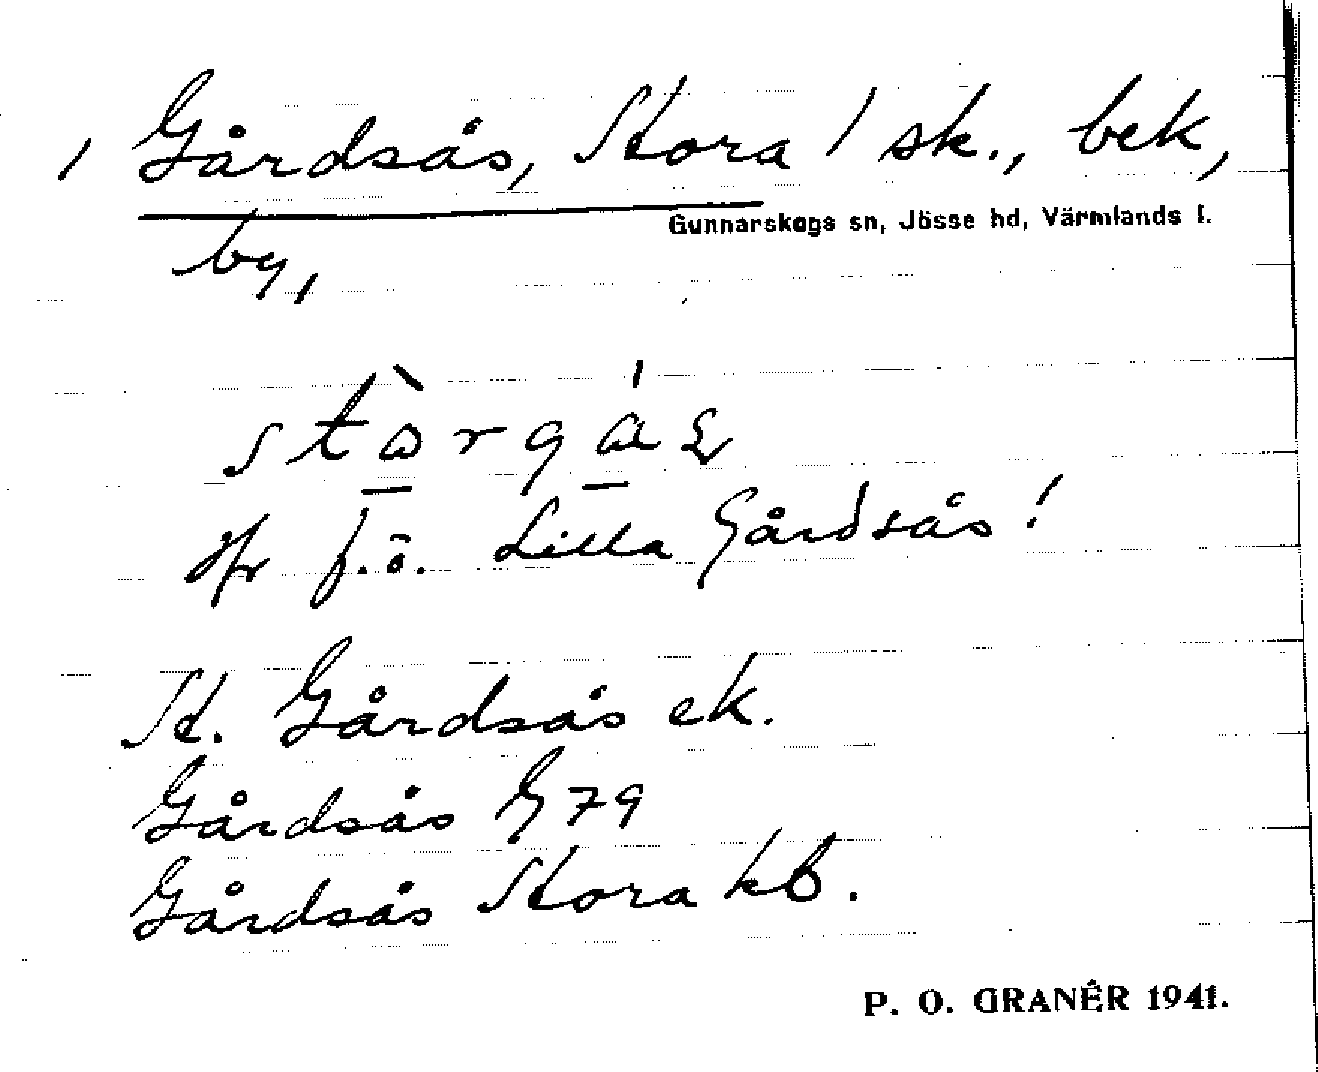 / Gårdsås, Stora / sk., bek,
Gunnarskogs sn, Jösse hd, Värmlands l.
by,
Jfr f.ö. Lilla Gårdsås!
St. Gårdsås ek.
Gårdsås G 79
Gårdsås Stora kb.
P. O. GRANÉR 1941.